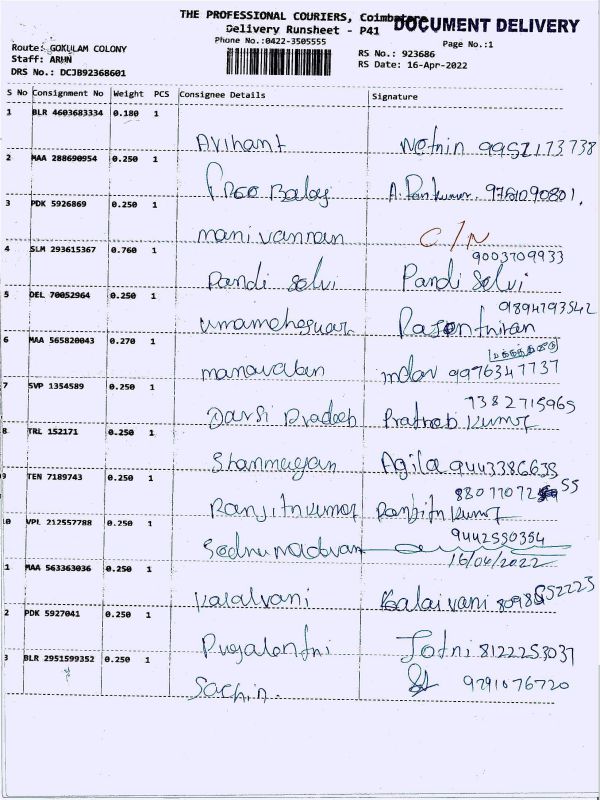 THE PROFESSIONAL COURIERS, Coimbatore
DOCUMENT DELIVERY
Delivery Runsheet - P41
Phone No.:0422-3505555
Page No.:1
Route: GOKULAM COLONY
RS No.: 923686
Staff: ARUN
RS Date: 16-Apr-2022
DRS No.: DCJB92368601
S No Consignment No Weight PCS Consignee Details Signature
1 BLR 4603683334 0.180 1
Arihant 9952173738
2 MAA 288690954 0.250 1
Free Balaj
3 PDK 5926869 0.250 1
manivannan C/N
4 SLM 293615367 0.760 1
9003709933
Pandi Selvi Pandi Selvi
5 DEL 70052964 0.250 1
9894793542
umamaheswar
6 MAA 565820043 0.270 1
manavalan 9976347737
7 SVP 1354589 0.250 1
7382715965
Darsi Pradeep Kumar
8 TRL 152171 0.250 1
Shanmugan Agila 9443386635
9 TEN 7189743 0.250 1
Ranjitnkumar Ranjitn Kumar
0 VPL 212557788 0.250 1
9442550354
16/04/2022
1 MAA 563363036 0.250 1
Kalaivani Kalaivani
2 PDK 5927041 0.250 1
Pugalentni Jotni 8122253037
3 BLR 2951599352 0.250 1
Sachin. 9791076720